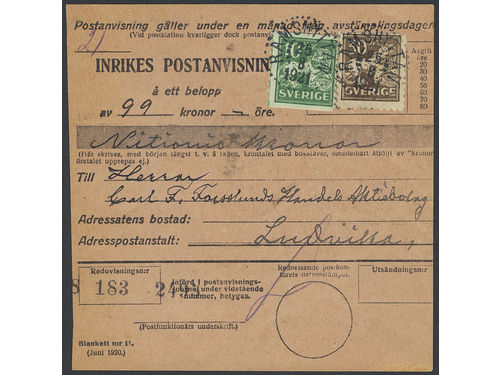 Postanvisning gäller under en månad från avstämplingsdagen
(Vid poststation kvarligger dock postanvisning
INRIKES POSTANVISNING
å ett belopp
av 99 kronor – öre.
RAMSHYTTAN
1921
SVERIGE
SVERIGE
Avgift
öre
20
30
40
50
60
70
80
Nittionio kronor
(Här skrives, med början längst t. v. å raden, krontalet med bokstäver, omedelbart åtföljt av "kronor
öretalet upprepas ej.)
Till Herrar
Carl F. Forsslunds Handels Aktiebolag
Adressatens bostad:
Adresspostanstalt: Ludvika,
Redovisningsnr
183
Införd i postanvisnings-
journal under vidstående
nummer, betygas.
(Postfunktionärs underskrift.)
Redovisande postkon-
torets datumstämpel.
Utsändningsnr.
Blankett nr
(Juni 1920.)